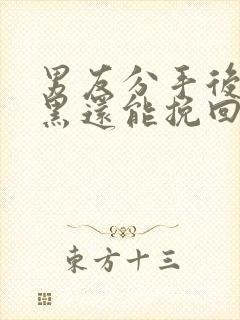 男友分手後
黑還能挽回
東方十三